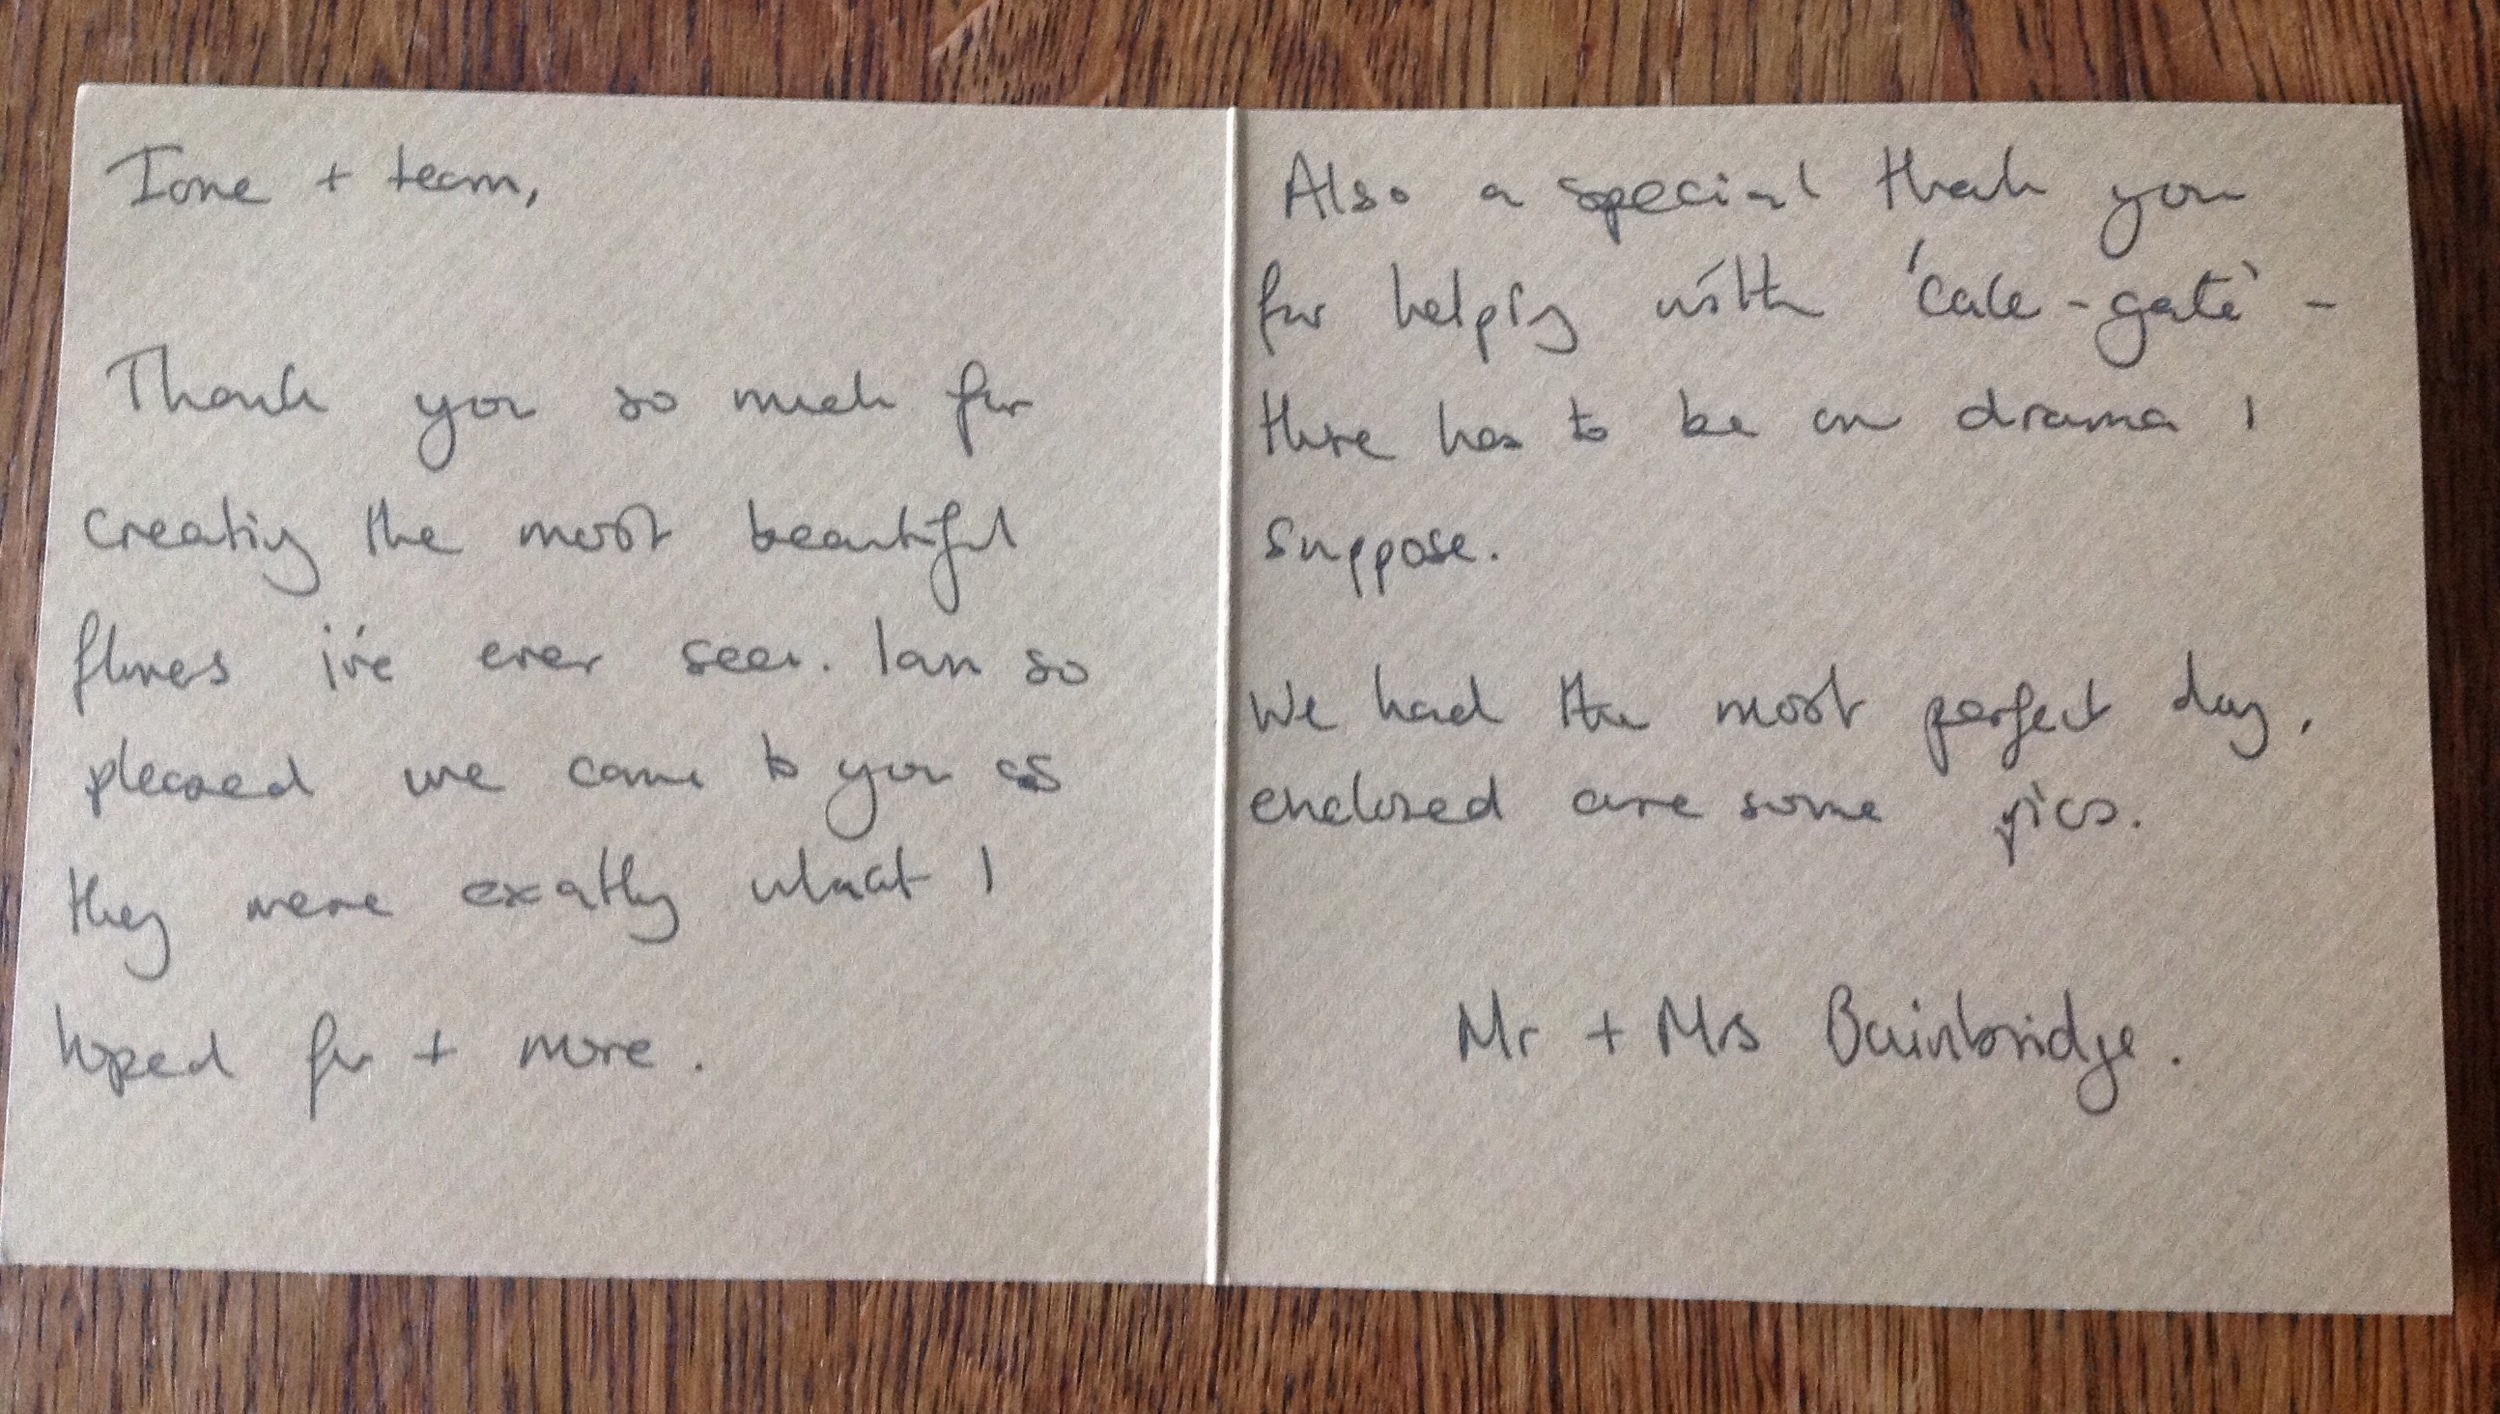 Ione + team,
Thank you so much for
creating the most beautiful
flowers i've ever seen. I am so
pleased we came to you as
they were exatly what I
hoped for + more.
Also a special thank you
for helping with 'cake-gate' -
there has to be one drama I
suppose.
We had the most perfect day,
enclosed are some pics.
Mr + Mrs Bainbridge.